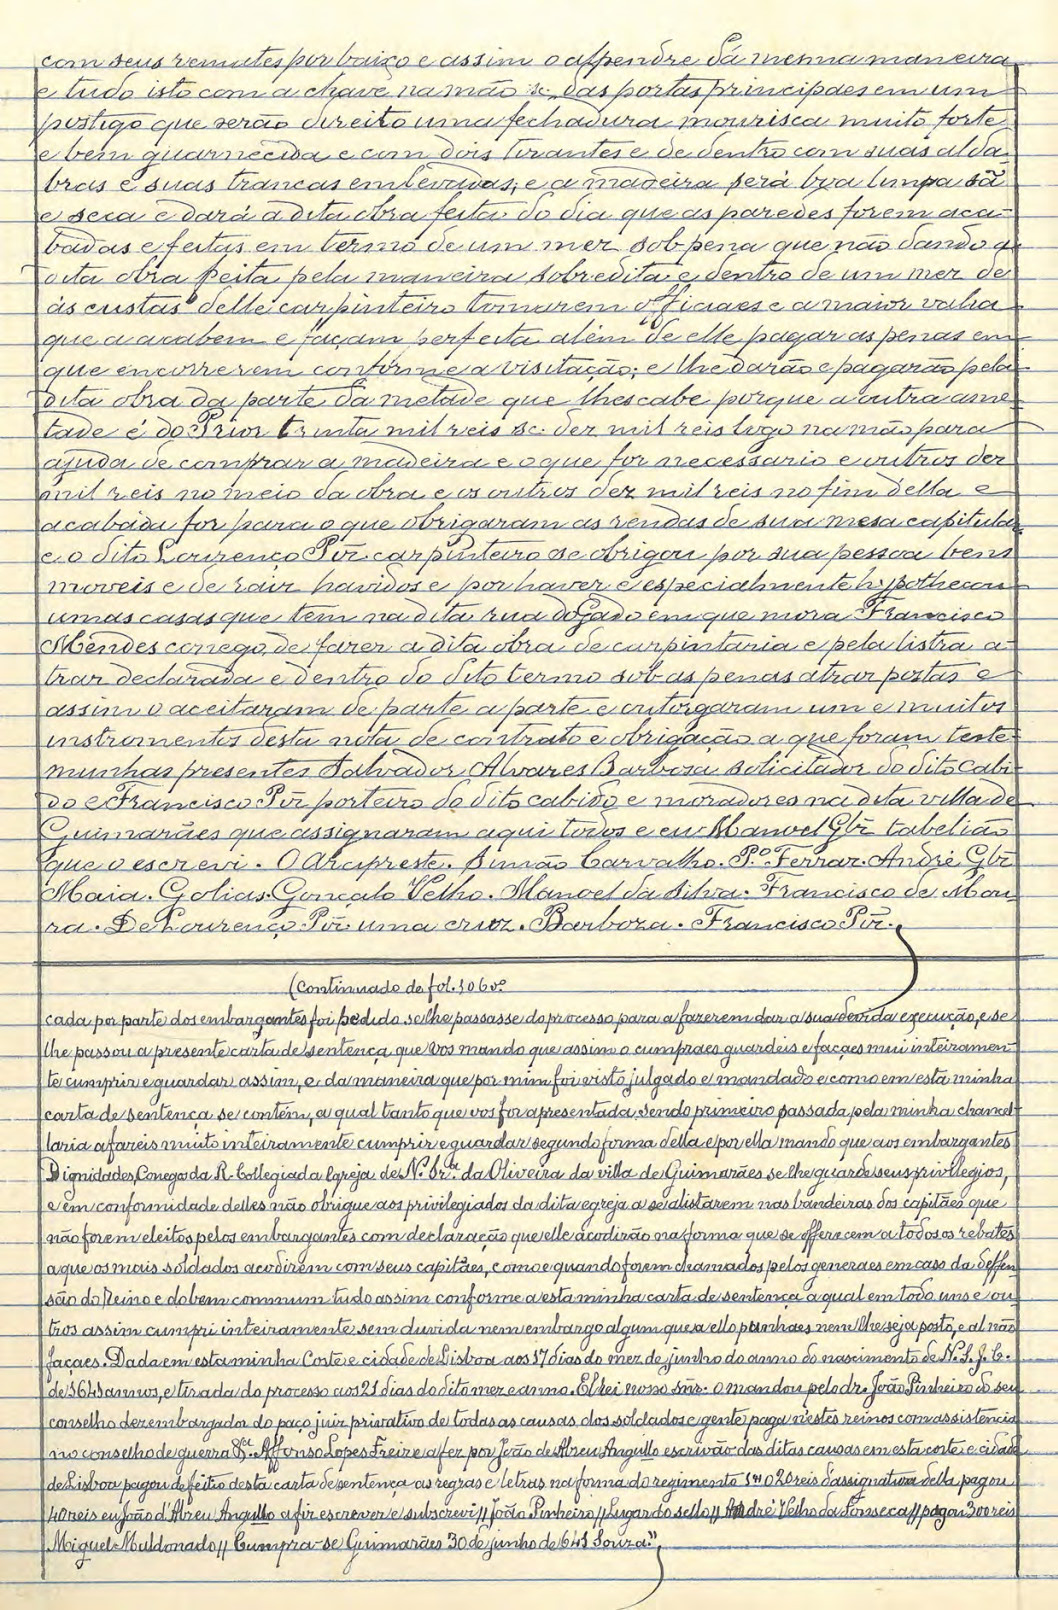 com seus remates por baixo e assim o alpendre da mesma maneira
e tudo isto com a chave na mão sc. das portas principaes em um
postigo que serão direito uma fechadura mourisca muito forte
e bem guarnecida e com dois tirantes e de dentro com suas alda-
bras e suas trancas emlevadas, e a madeira será boa limpa sã
e seca e dará a dita obra feita do dia que as paredes forem aca-
badas e feitas em termo de um mez sob pena que não dando a
dita obra feita pela maneira sobredita e dentro de um mez de
ás custas delle carpinteiro tomarem officiaes e a maior valia
que a acabem e façam perfeita além de elle pagar as penas em
que encorrerem conforme a visitação; e lhe darão e pagarão pela
dita obra da parte da metade que lhes cabe porque a outra ame-
tade é do Prior trinta mil reis sc. dez mil reis logo na mão para
ajuda de comprar a madeira e o que for necessario e outros dez
mil reis no meio da obra e os outros dez mil reis no fim della e
acabada for para o que obrigaram as rendas de sua mesa capitular
e o dito Lourenço Pĩz carpinteiro se obrigou por sua pessoa bens
moveis e de raiz havidos e por haver e especialmente hypothecou
umas casas que tem na dita rua do Gado em que mora Francisco
Mendes conego, de fazer a dita obra de carpintaria e pela listra a-
traz declarada e dentro do dito termo sob as penas atraz postas e
assim o aceitaram de parte a parte e outorgaram um e muitos
instromentos desta nota de contrato e obrigação a que foram teste-
munhas presentes Salvador Alvares Barbosa solicitador do dito Cabi-
do e Francisco Pĩz porteiro do dito cabido e moradores na dita villa de
Guimarães que assignaram aqui todos e eu Manoel Glz̃ tabelião
que o escrevi. O Arcipreste. Simão Carvalho. P.º Ferraz. André Glz̃
Maia. Golias. Gonçalo Velho. Manoel da Silva. Francisco de Mou-
ra. De Lourenço Pĩz uma cruz. Barboza. Francisco Pĩz.
(Continuado de fol. 106 vº
cada por parte dos embargantes foi pedido se lhe passasse do processo para a fazerem dar a sua devida execução, e se
lhe passou a presente carta de sentença que vos mando que assim o cumpraes guardeis e façaes mui inteiramen-
te cumprir e guardar assim, e da maneira que por mim foi visto julgado e mandado e como em esta minha
carta de sentença se contém, a qual tanto que vos for apresentada sendo primeiro passada pela minha chancel-
laria a fareis muito inteiramente cumprir e guardar segundo forma della e por ella mando que aos embargantes
Dignidades, Conegos da R. Collegiada Igreja de N. Srª. da Oliveira da villa de Guimarães se lhe guarde seus privilegios,
e em conformidade delles não obrigue aos privilegiados da dita egreja a se alistarem nas bandeiras dos capitães que
não forem eleitos pelos embargantes com declaração que elle acodirão na forma que se offerecem a todos os rebates
a que os mais soldados acodirem com seus capitães, e como e quando forem chamados pelos generaes em caso da deffen-
são do Reino e do bem commum tudo assim conforme a esta minha carta de sentença a qual em todo uns e ou-
tros assim cumpri inteiramente sem duvida nem embargo algum que a ello ponhaes nem lhe seja posto, e al não
façaes. Dada em esta minha Corte e cidade de Lisboa aos 17 dias do mez de junho do anno do nascimento de N. S. J. C.
de 1641 annos, e tirada do processo aos 21 dias do dito mez e anno. El rei nosso sñr. o mandou pelo dr. João Pinheiro do seu
conselho dezembargador do paço juiz privativo de todas as causas dos soldados e gente paga n'estes reinos com assistencia
no conselho de guerra &ª. Affonso Lopes Freire a fez por João de Abreu Angullo escrivão das ditas causas em esta corte e cidade
de Lisboa pagou de feitio desta carta de sentença as regras e letras na forma do regimento 1$020 reis d'assignatura della pagou
40 reis eu João d'Abreu Angullo a fiz escrever e subscrevi // João Pinheiro // Lugar do sello // André Velho da Fonseca // pagou 300 reis
Miguel Maldonado // Cumpra-se Guimarães 30 de junho de 641 Souza."